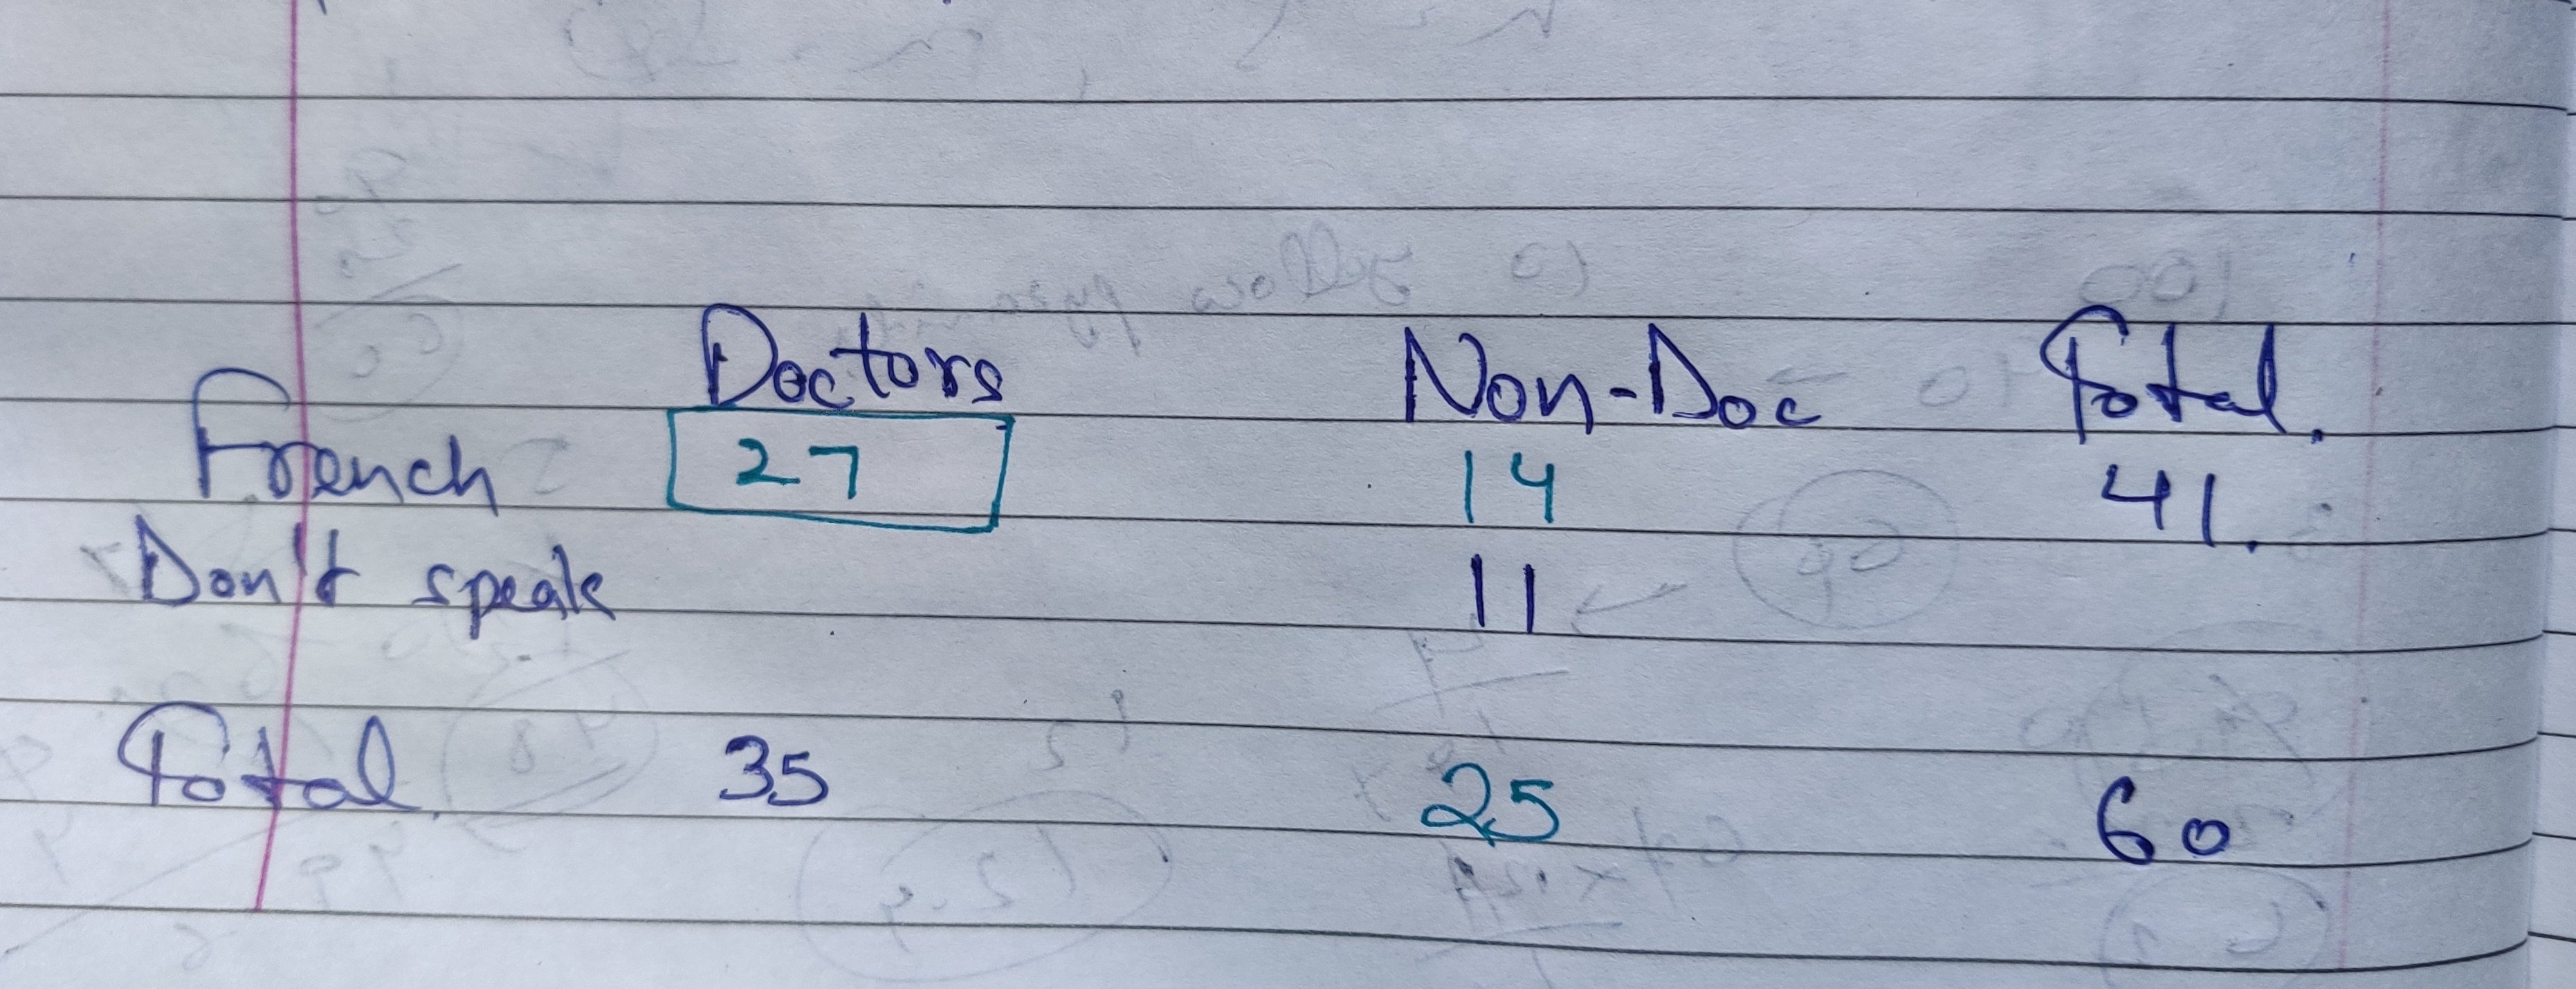 Doctors Non-Doc Total.
French 27 14 41.
Don't speak 11
Total 35 25 60